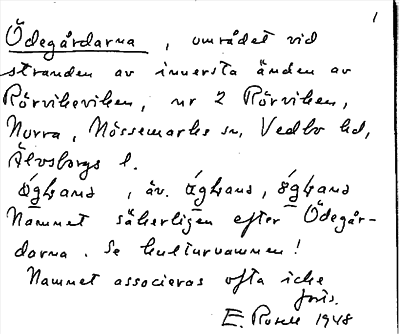 1
Ödegårdarna, området vid
stranden av innersta änden av
Rörvikeviken, nr 2 Rörviken,
Norra, Nössemarks sn, Vedbo hd,
Älvsborgs l.
, äv. ,
Namnet säkerligen efter Ödegår-
darna. Se kulturnamnen!
Namnet associeras ofta icke
förts.
E. Rosell 1948